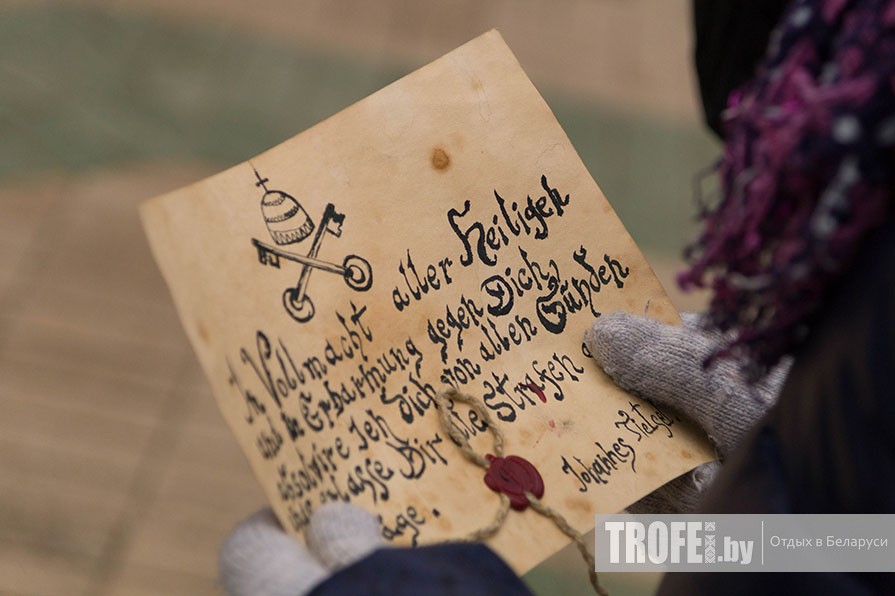 In Vollmacht aller Heiligen
und Erbarmung gegen Dich,
absolvire Ich Dich von allen Sünden
erlasse Dir alle Strafen
äge.
Johannes
TROFEI.by
Отдых в Беларуси